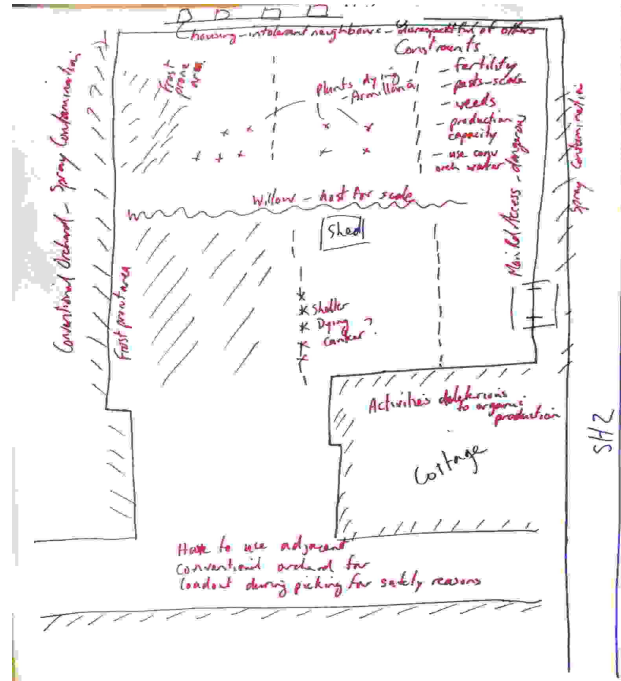 Chousing - intolerant neighbours - disrespectful of others
Constraints
- fertility
- pests - scale
- weeds
- production
capacity
- use conv
orch water
Frost
prone
area
Plants dying
- Armillaria
Conventional Orchard - Spray Contamination
Spray Contamination
Main Rd Access - dangerous
Willow - host for scale
Shed
Frost prone area
Shelter
Dying
canker?
Activities deleterious
to organic
production
Cottage
SH2
Have to use adjacent
conventional orchard for
loadout during picking for safety reasons